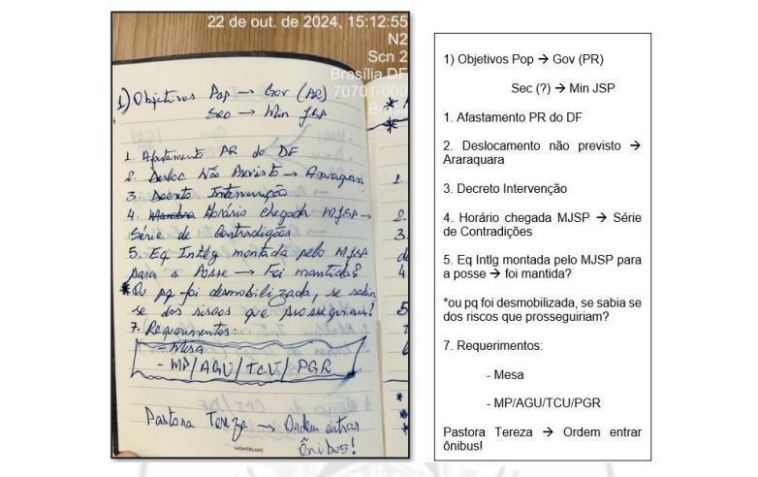 22 de out. de 2024, 15:12:55
N2
Scn 2
Brasília DF
70701-000
1) Objetivos Pop → Gov (PR)
Sec → Min JSP
1. Afastamento PR do DF
2. Desloc Não Previsto → Araraquara
3. Decreto Intervenção
4. Horário chegada MJSP →
Série de Contradições
5. Eq Intlg montada pelo MJSP
para a Posse → Foi mantida?
*Ou pq foi desmobilizada, se sabia
se dos riscos que prosseguiriam?
7. Requerimentos:
- Mesa
- MP/AGU/TCU/PGR
Pastora Tereza → Ordem entrar
Ônibus!
MONTBLANC
1.
2.
3.
4
5
1) Objetivos Pop → Gov (PR)
Sec (?) → Min JSP
1. Afastamento PR do DF
2. Deslocamento não previsto →
Araraquara
3. Decreto Intervenção
4. Horário chegada MJSP → Série
de Contradições
5. Eq Intlg montada pelo MJSP para
a posse → foi mantida?
*ou pq foi desmobilizada, se sabia se
dos riscos que prosseguiriam?
7. Requerimentos:
- Mesa
- MP/AGU/TCU/PGR
Pastora Tereza → Ordem entrar
ônibus!